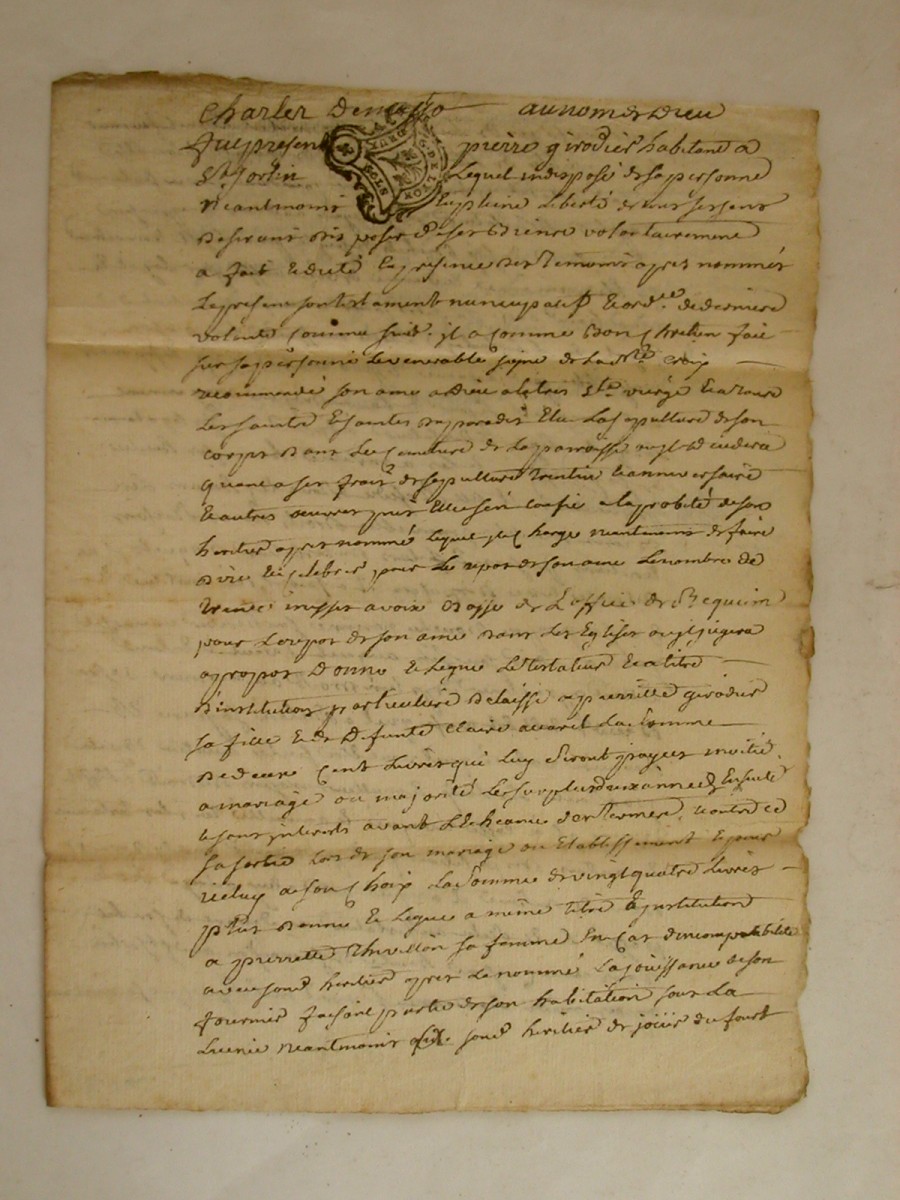 Charles Demasso au nom de Dieu
fut present pierre girodier habitant a
St fortin Lequel indisposé de sa personne
Neantmoins En pleine Liberté de tous ses sens
Desirant disposer de ses Biens volontairement
a fait Et dicté En presence des temoins apres nommés
Le present son testament nuncupatif Et ord.ce de derniere
volonté comme suit. il a comme Bon Chretien fait
sur sa personne Le venerable signe de La Ste Croix
recommandé son ame a Dieu a la tres Ste vierge Et a tous
Les saints Et saintes du paradis Elu La sepulture de son
corps dans Le Cimetiere de La paroisse ou il Decedera
Quant a ses frais de sepulture trentin Et anniversaire
Et autres oeuvres pies Il s'en confie a la probité de son
heritier apres nommé Lequel il Charge neantmoins de faire
dire Et celebrer pour Le repos de son ame Le nombre de
trente messes a voix Basse de L'office de Requiem
pour Le repos de son ame dans Les Eglises ou il jugera
a propos Donne Et Legue Le testateur Et a titre
d'institution particuliere Delaisse a pierrette girodier
sa fille Et de Defunte Claire La Somme
De deux Cent Livres qui Luy Seront payées moitié
a mariage ou majorité Le surplus une année Ensuite
Et sans interests avant L'Echeance des termes, Et outre ce
sa sortie Lors de son mariage ou Etablissement Et pour
icelux a son Choix La Somme de vingt quatre Livres
plus donne Et Legue a même titre d'institution
a pierrette thivillon sa femme En Cas d'incompatibilité
avec son d. heritier apres La nommé La joüissance de son
fournier faisant partie de son habitation sous La
neantmoins son d. heritier de joüir du fourt